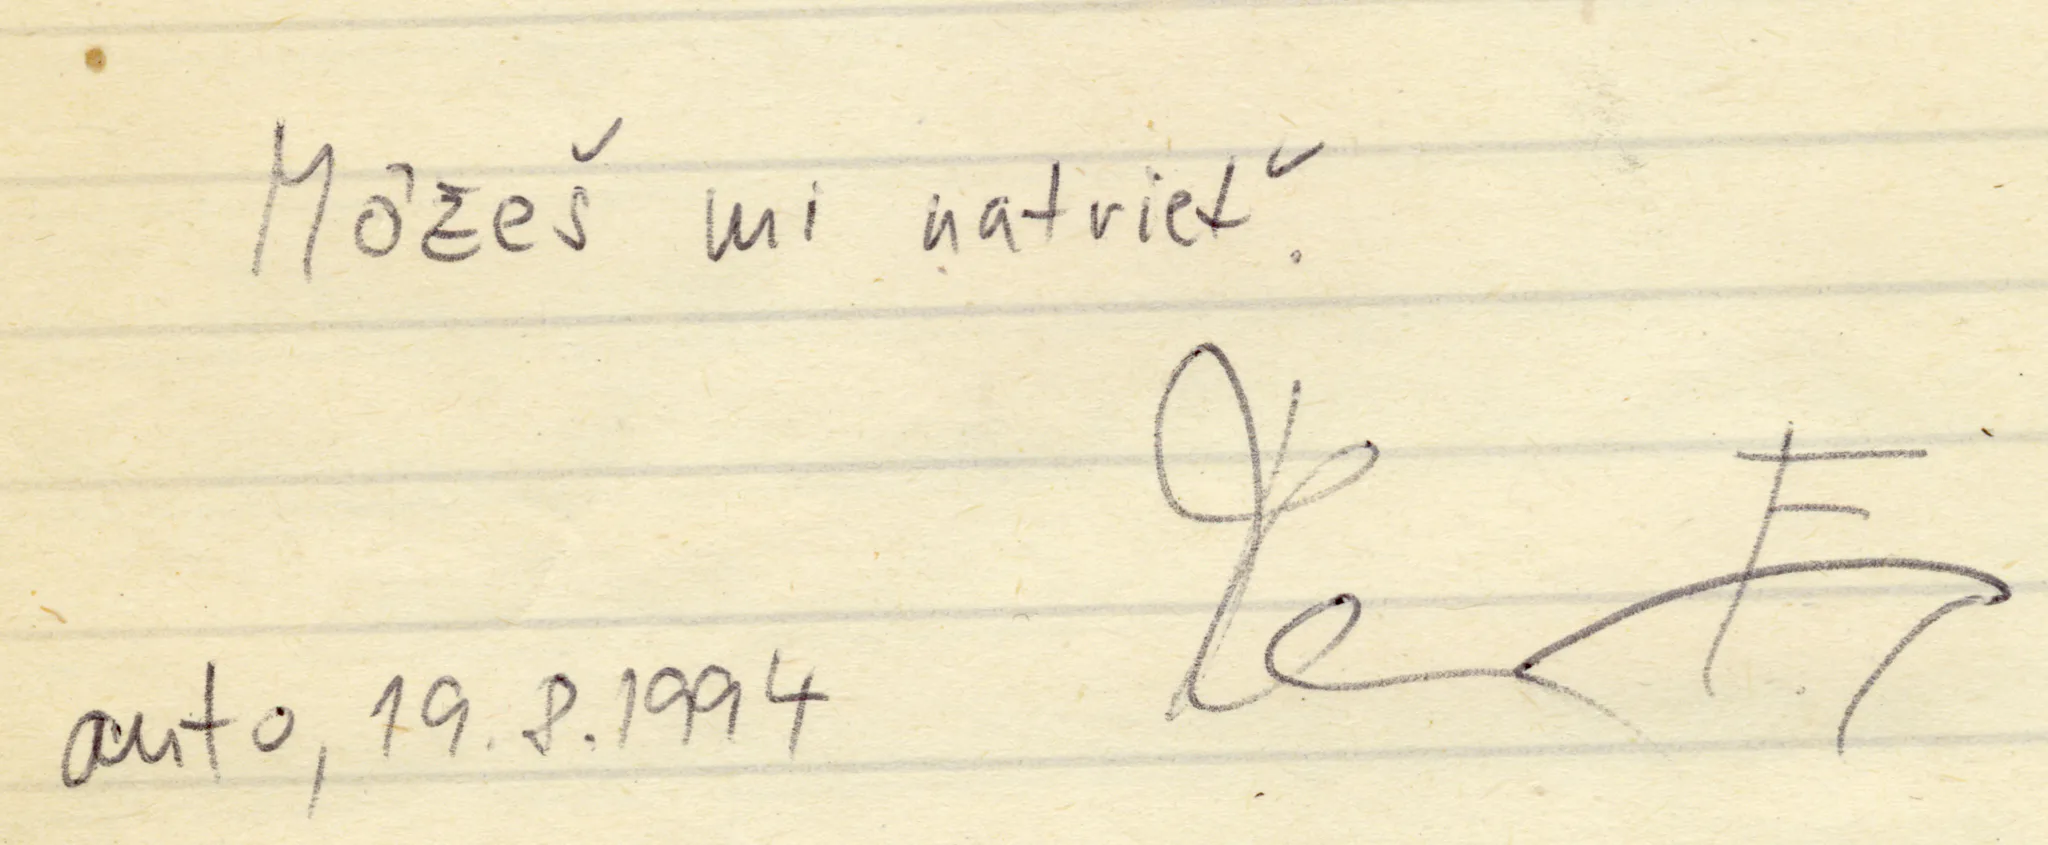 Môžeš mi natrieť.
F.
auto, 19.8.1994